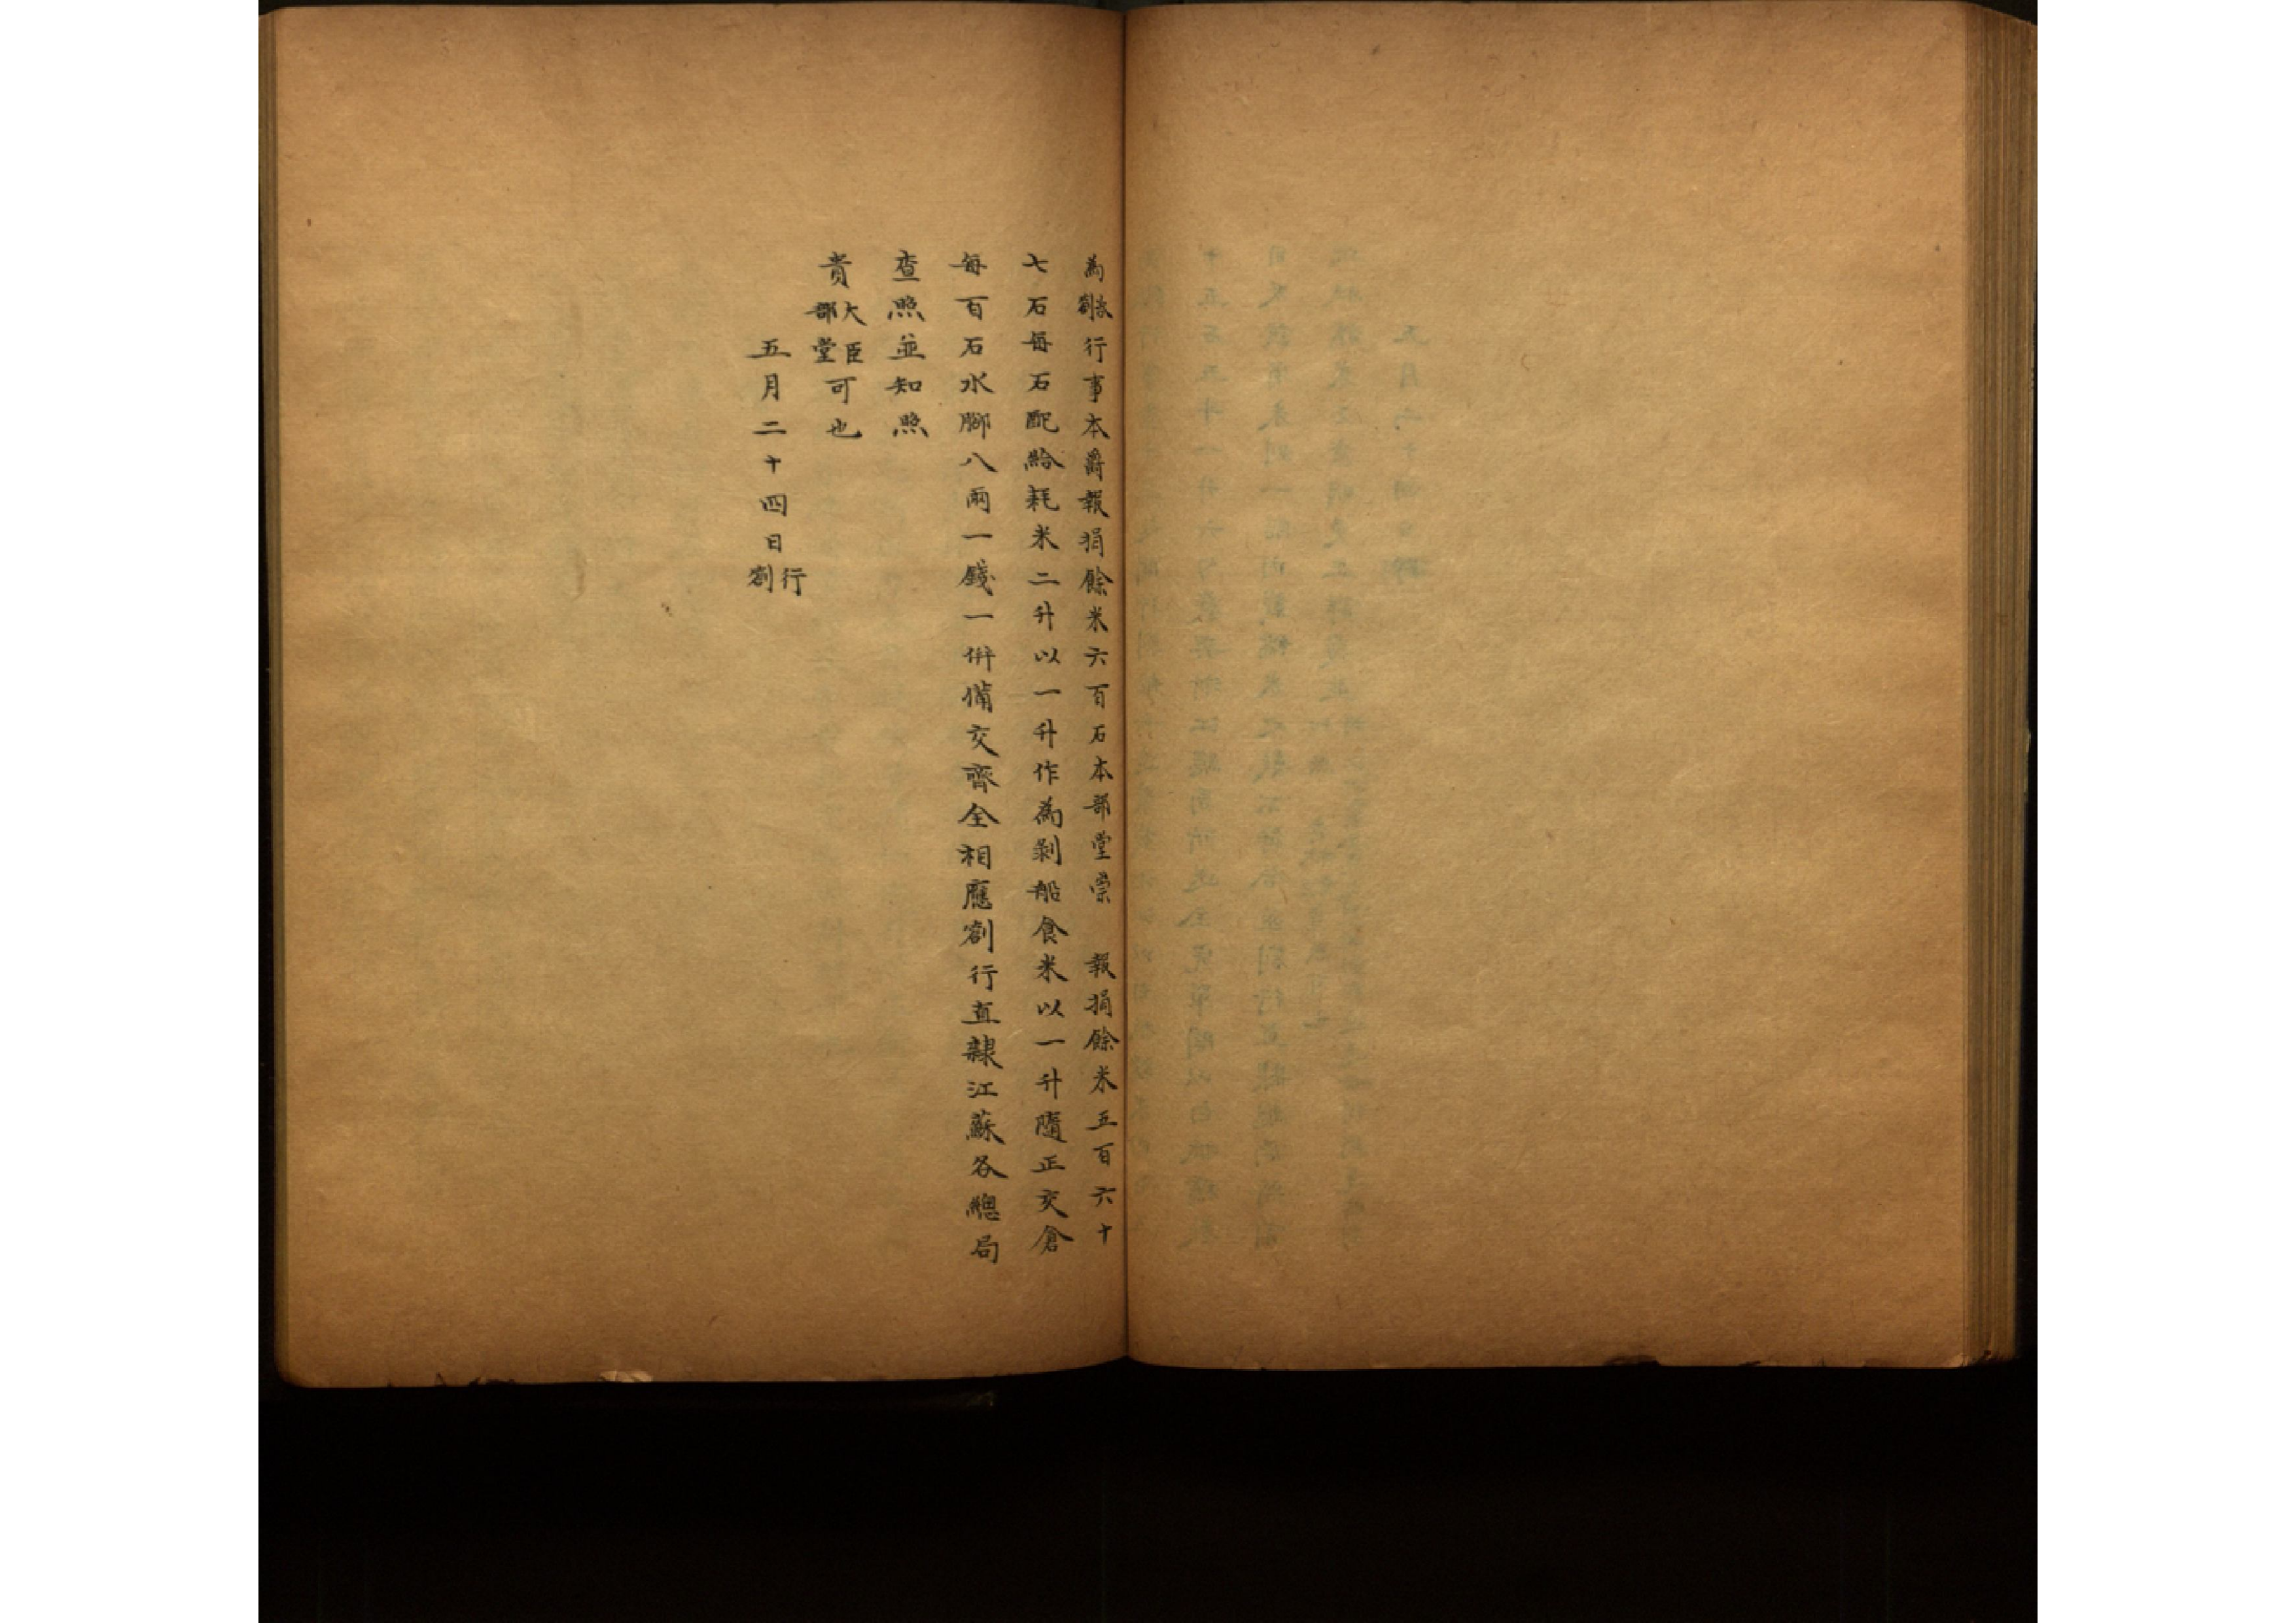 為咨劄行事本爵報捐餘米六百石本部堂崇 報捐餘米五百六十
七石每石配給耗米二升以一升作為剝船食米以一升隨正交倉
每百石水腳八兩一錢一併備交齊全相應劄行直隸江蘇各總局
查照並知照
貴大臣部堂可也
五月二十四日行劄